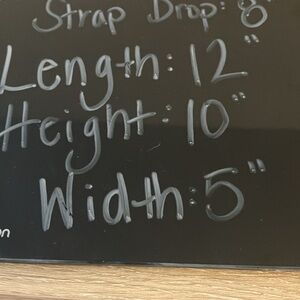 Strap Drop: 8"
Length: 12"
Height: 10"
Width: 5"